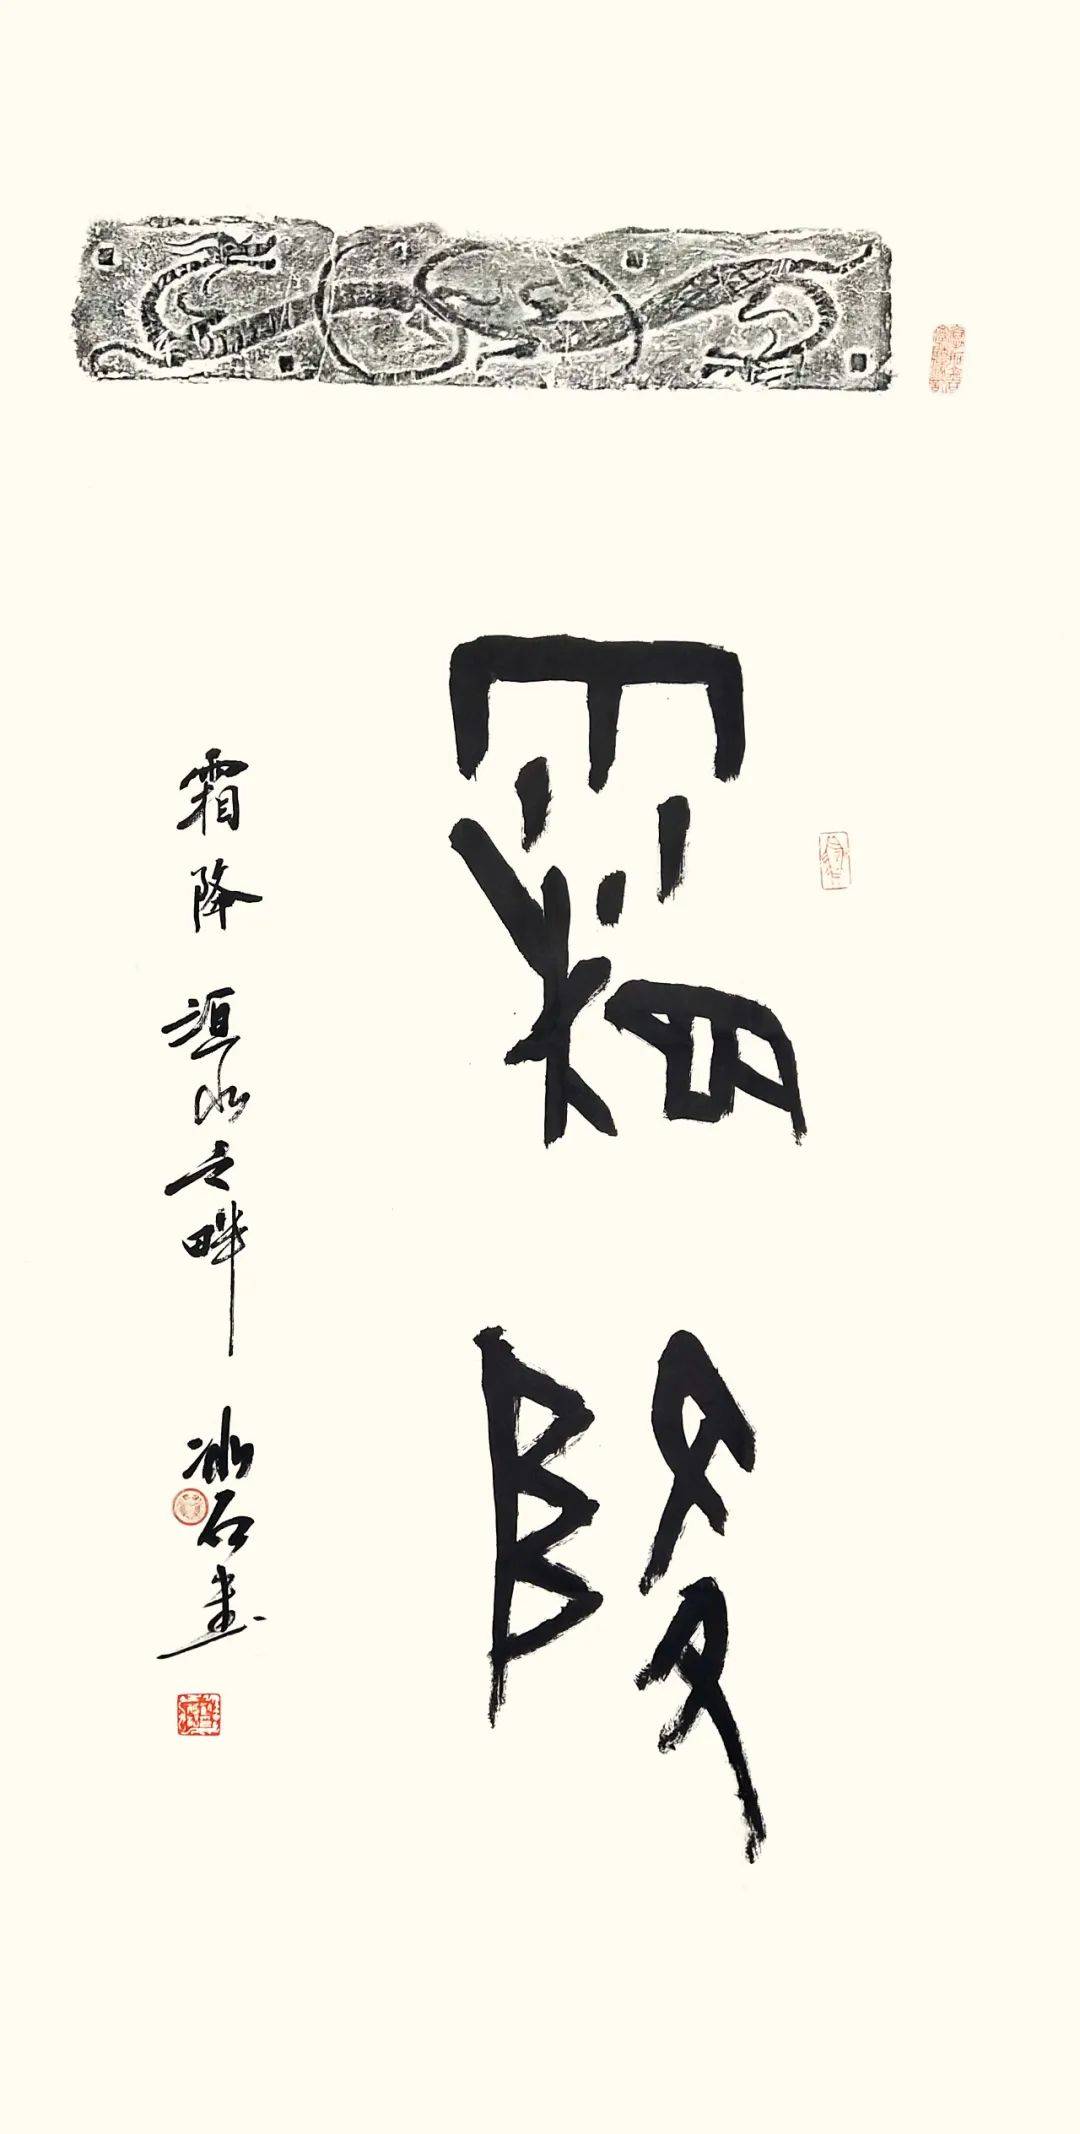 霜降
霜降 洹水之畔 冰石書